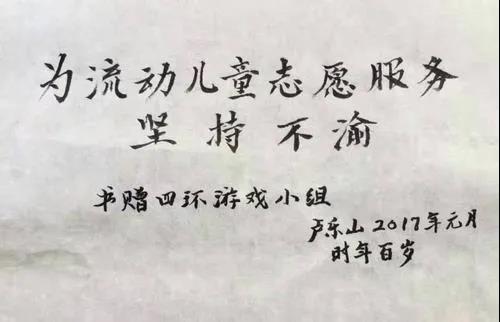 为流动儿童志愿服务
坚持不渝
书赠四环游戏小组
卢乐山 2017年元月
时年百岁